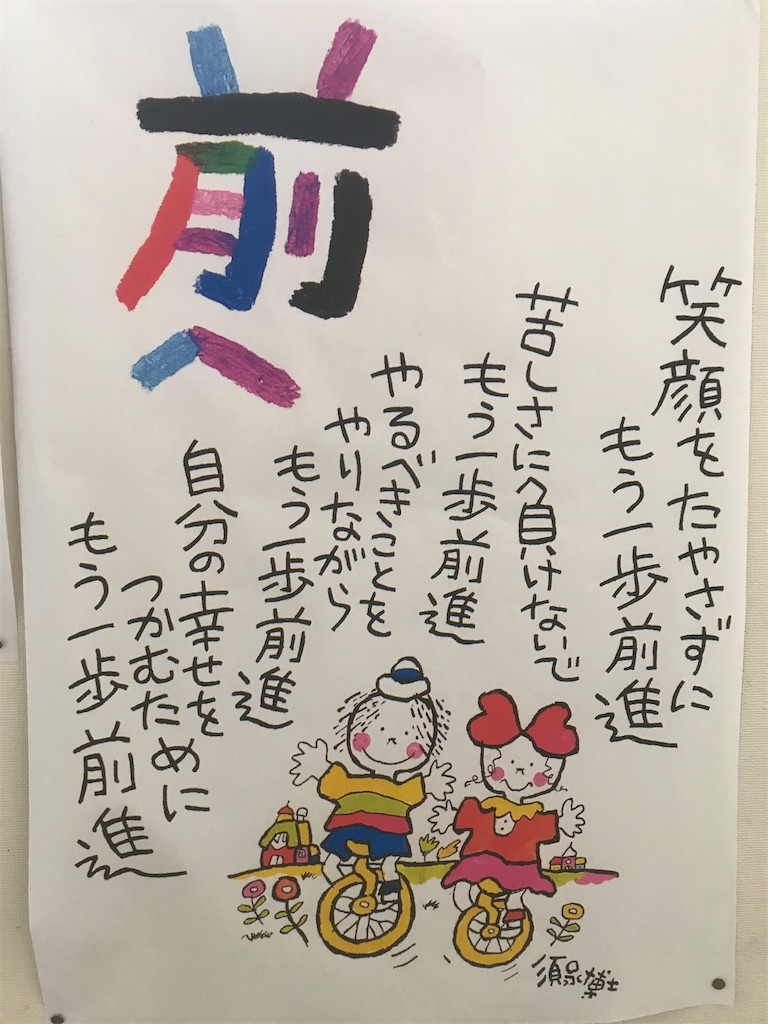 前へ
笑顔をたやさずに
もう一歩前進
苦しさに負けないで
もう一歩前進
やるべきことを
やりながら
もう一歩前進
自分の幸せを
つかむために
もう一歩前進
須永博士